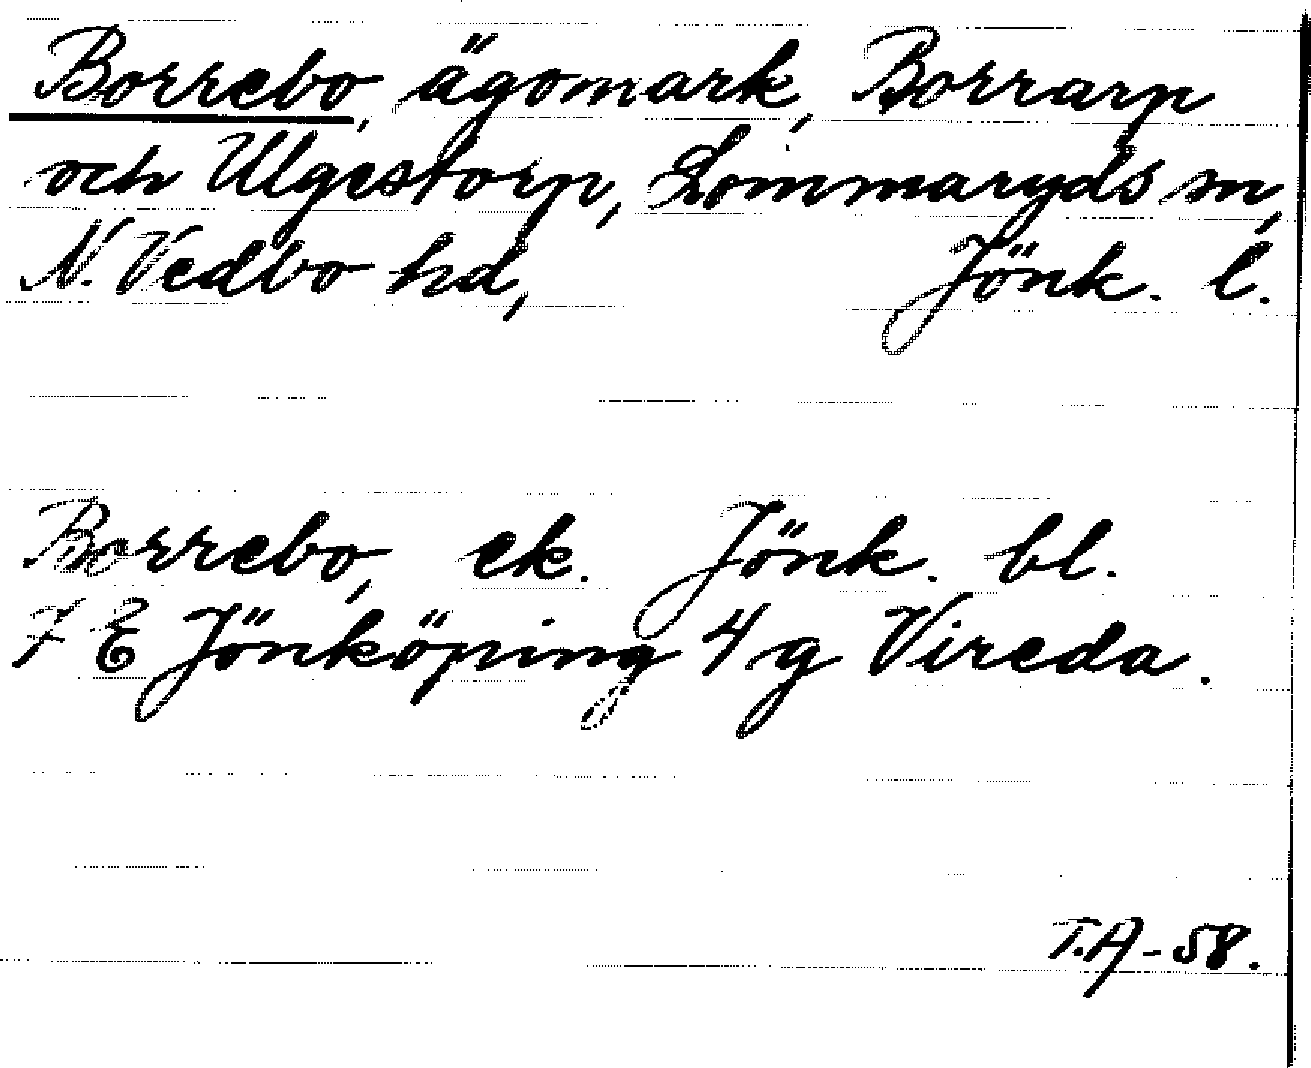 Borrebo, ägomark, Borrarp
och Ulgestorp, Lommaryds sn,
N. Vedbo hd, Jönk. l.
Borrebo, ek. Jönk. bl.
7 E Jönköping 4 g Vireda.
T.A-58.